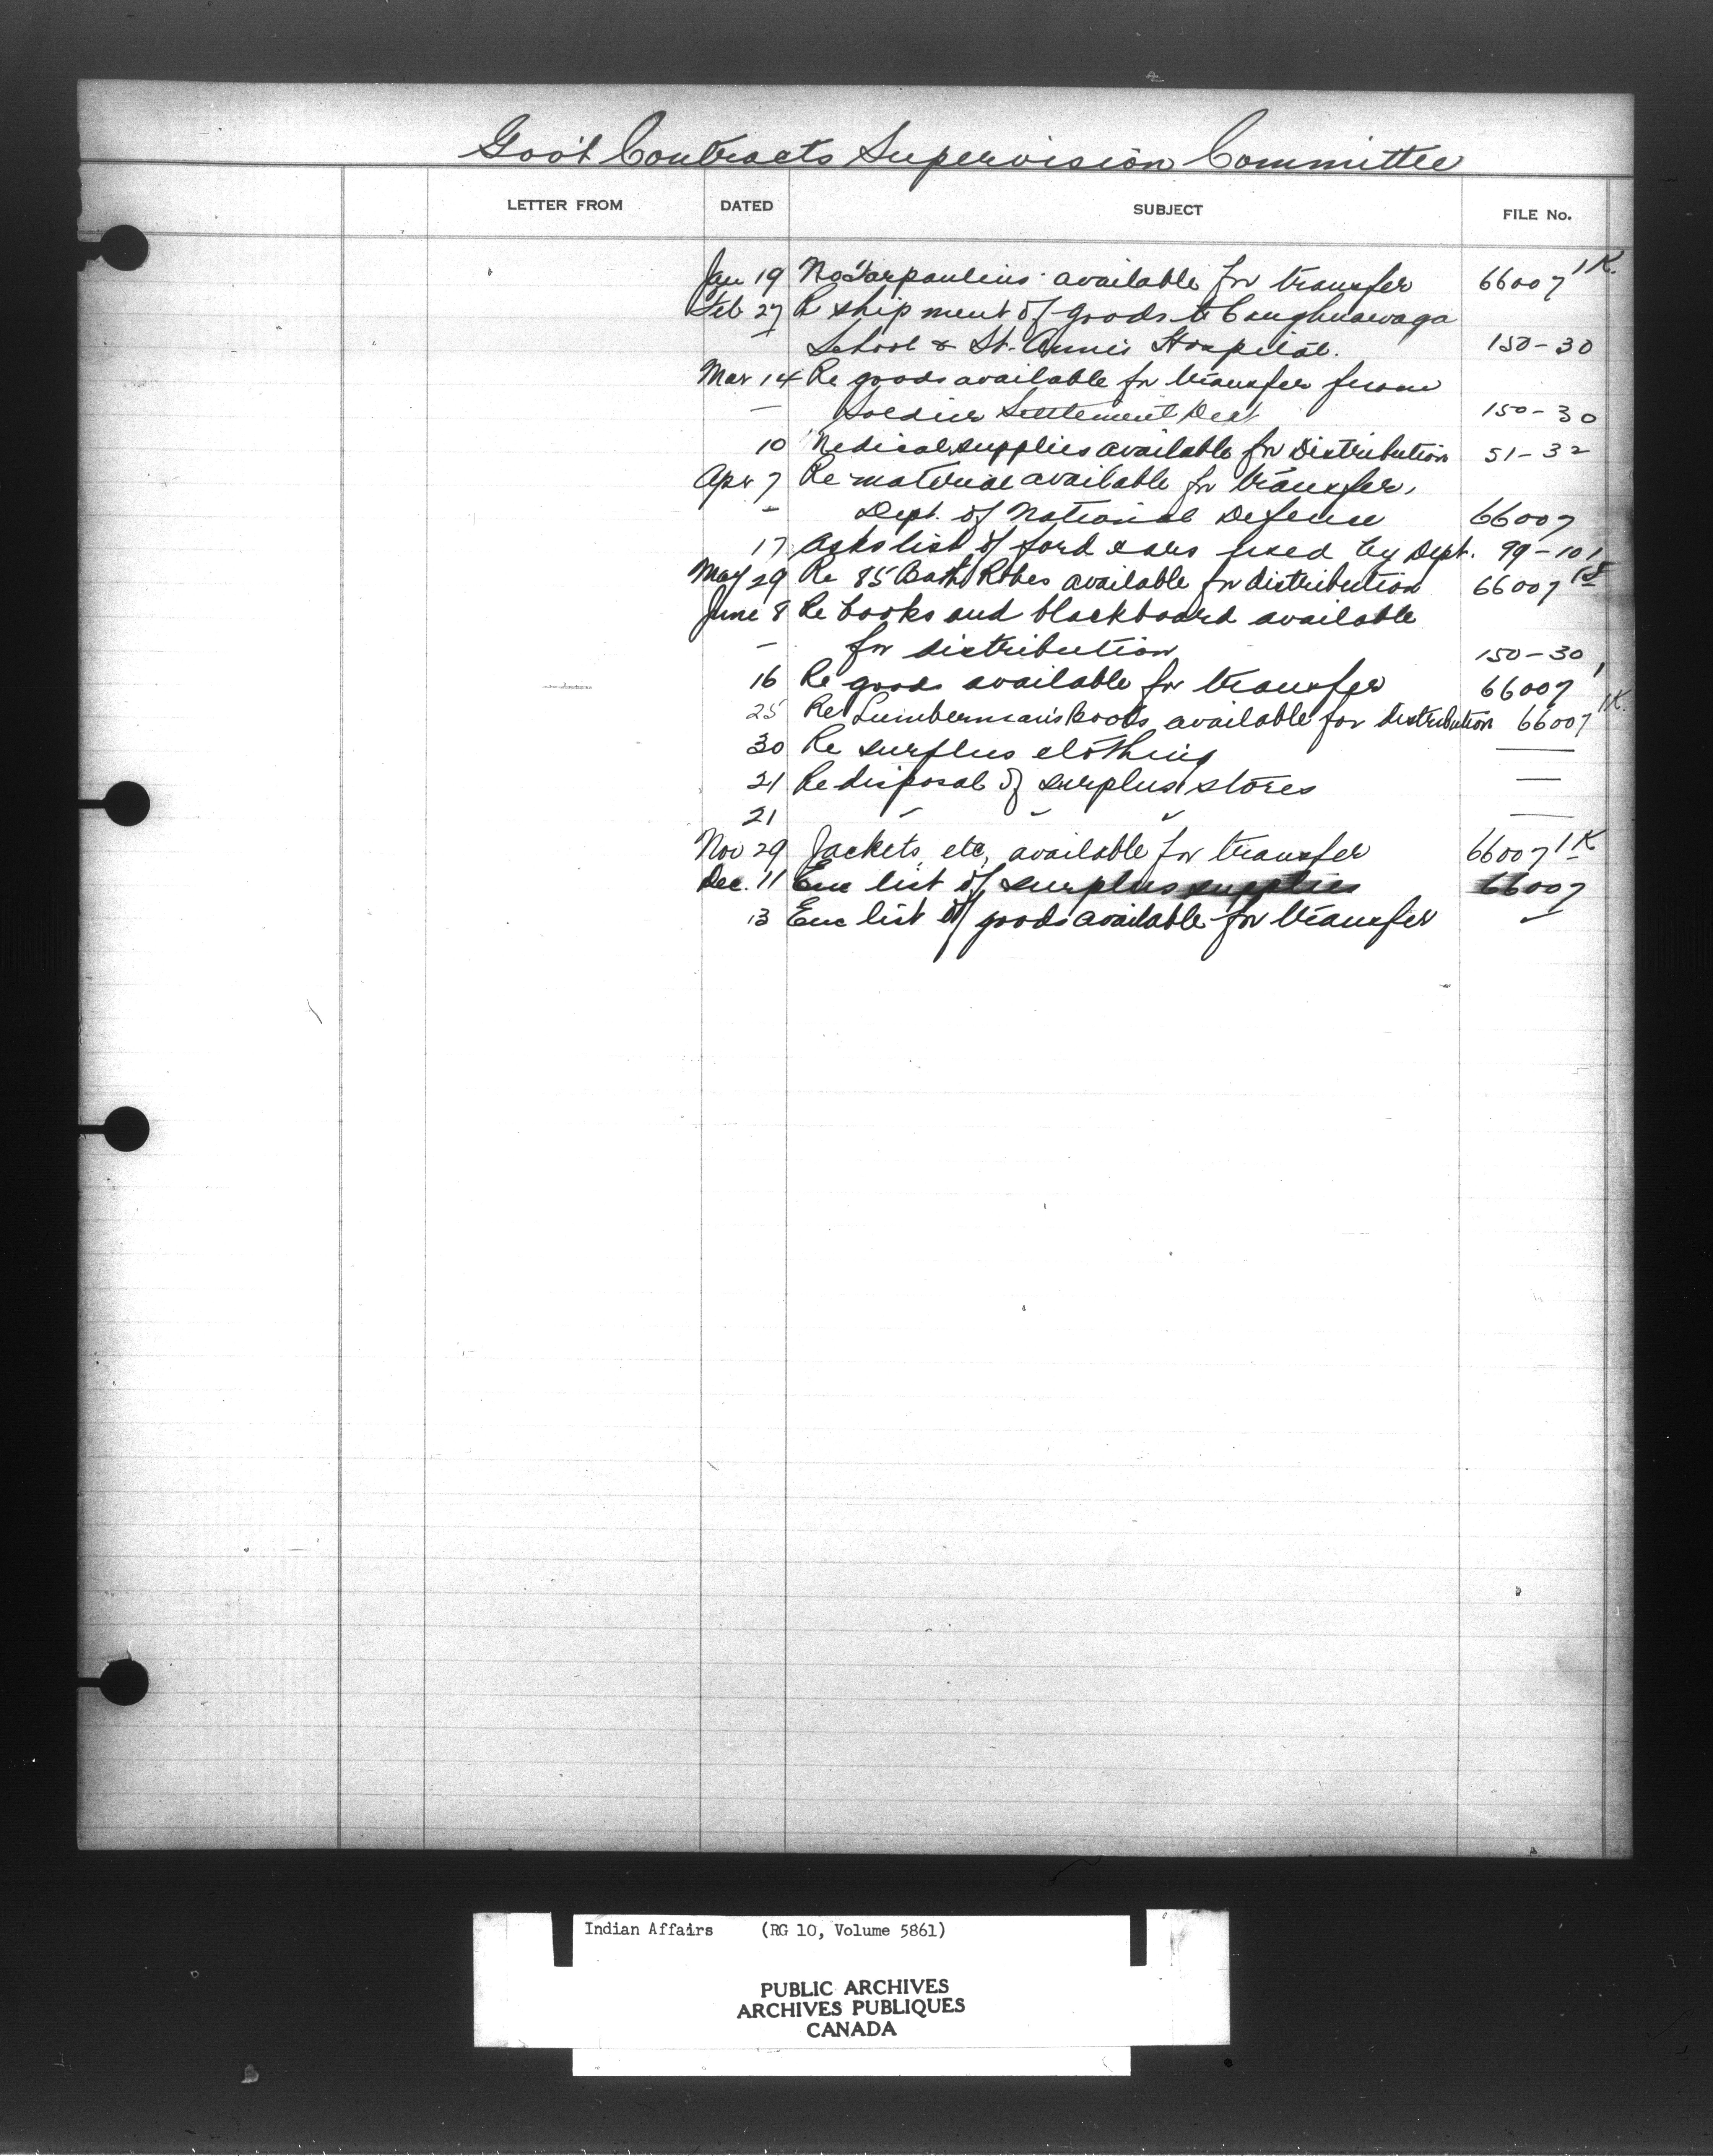 Gov't Contracts Supervision Committee
LETTER FROM DATED SUBJECT FILE No.
Jan 19 No Tarpaulins available for transfer 66007 1K.
Feb 27 Re shipment of goods to Caughnawaga
School & St. Anne's Hospital. 150-30
Mar 14 Re goods available for transfer from
— Soldier Settlement Dept 150-30
10 Medical supplies available for Distribution 51-32
Apr 7 Re material available for transfer,
— Dept. of National Defence 66007
17 Asks list of Ford cars used by Dept. 99-10
May 29 Re 85 Bath Robes available for distribution 66007
June 8 Re books and blackboard available
— for distribution 150-30
16 Re goods available for transfer 66007 1
25 Re Lumberman's Boots available for distribution 66007 1K.
30 Re surplus clothing —
21 Re disposal of surplus stores —
21 " " " —
Nov 29 Jackets, etc, available for transfer 66007 1K
Dec. 11 Enc list of surplus supplies 66007
13 Enc list of goods available for transfer "
Indian Affairs (RG 10, Volume 5861)
PUBLIC ARCHIVES
ARCHIVES PUBLIQUES
CANADA